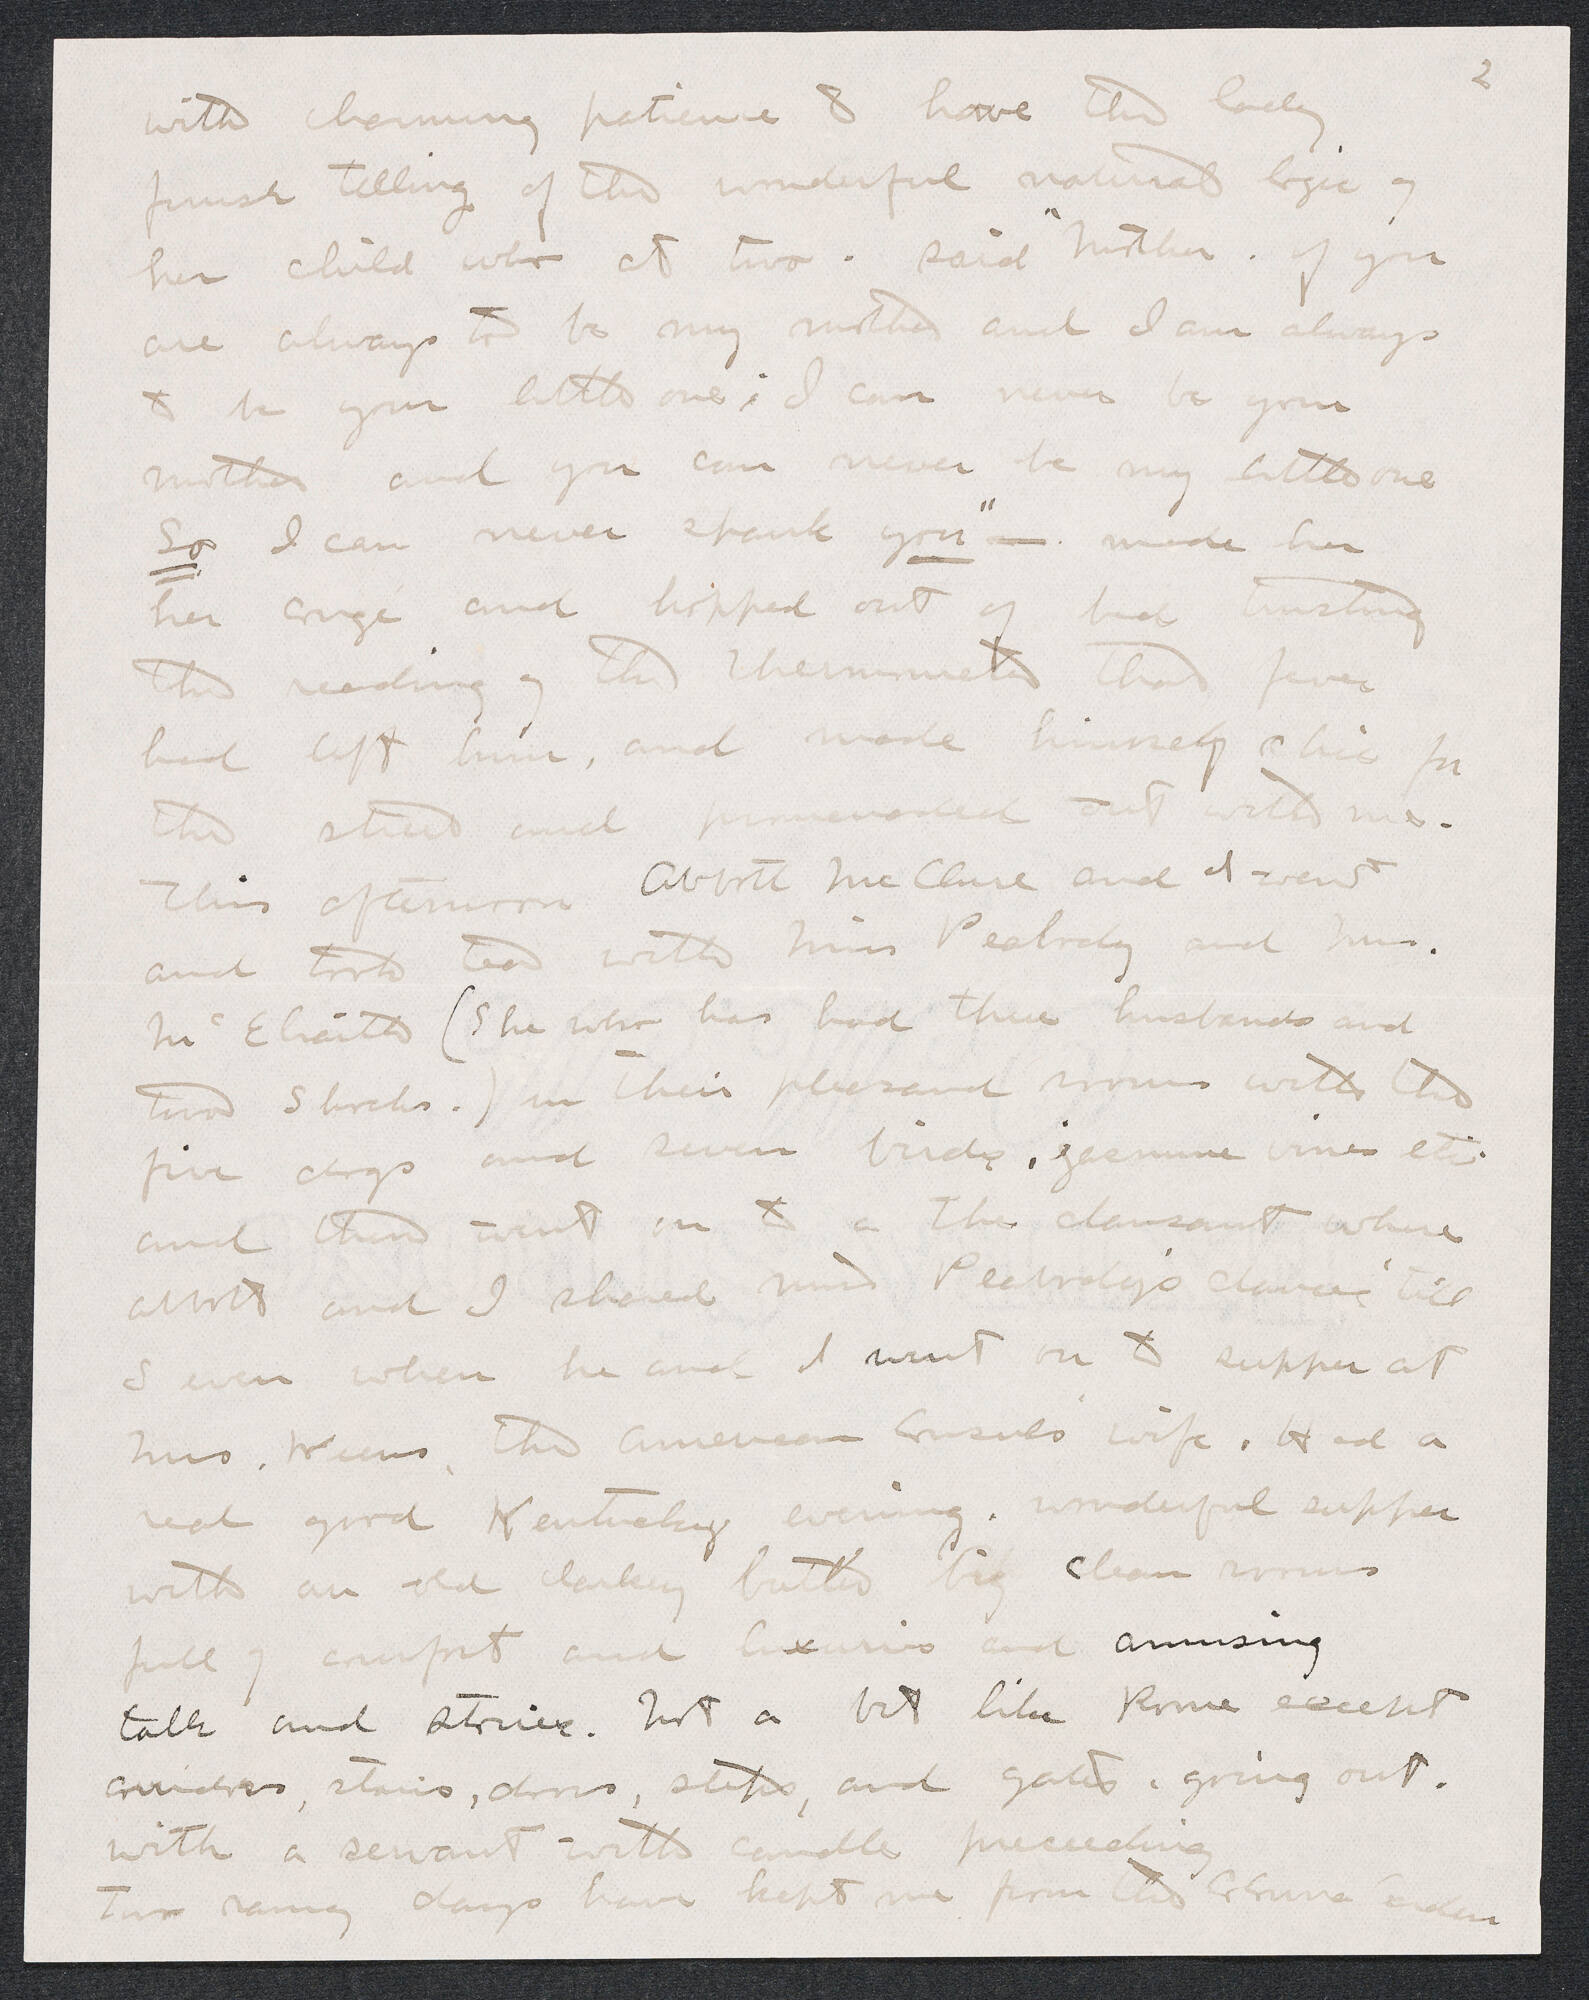 2
with charming patience & have the lady
finish telling of the wonderful natural logic of
her child who at two. said "Mother. if you
are always to be my mother and I am always
to be your little one; I can never be your
mother and you can never be my little one
So I can never spank you" — made her
her congé and hopped out of bed trusting
the reading of the thermometer that fever
had left him, and made himself chic for
the street and promenaded out with me.
This afternoon Abbott McClure and I went
and took tea with Miss Peabody and Mrs.
(She who has had three husbands and
two shocks.) in their pleasant rooms with the
five dogs and seven birds, jasmine vines etc.
and then went on to a The dansant where
Abbott and I shared Miss Peabody's dances 'till
seven when he and I went on to supper at
Mrs. the American Consuls' wife. Had a
real good Kentucky evening. wonderful supper
with an old darkey butler big clean rooms
full of comfort and luxuries and amusing
talk and stories. Not a bit like Rome except
corridors, stairs, doors, steps, and gates. going out.
with a servant with candle preceeding
Two rainy days have kept me from the Colonna Garden